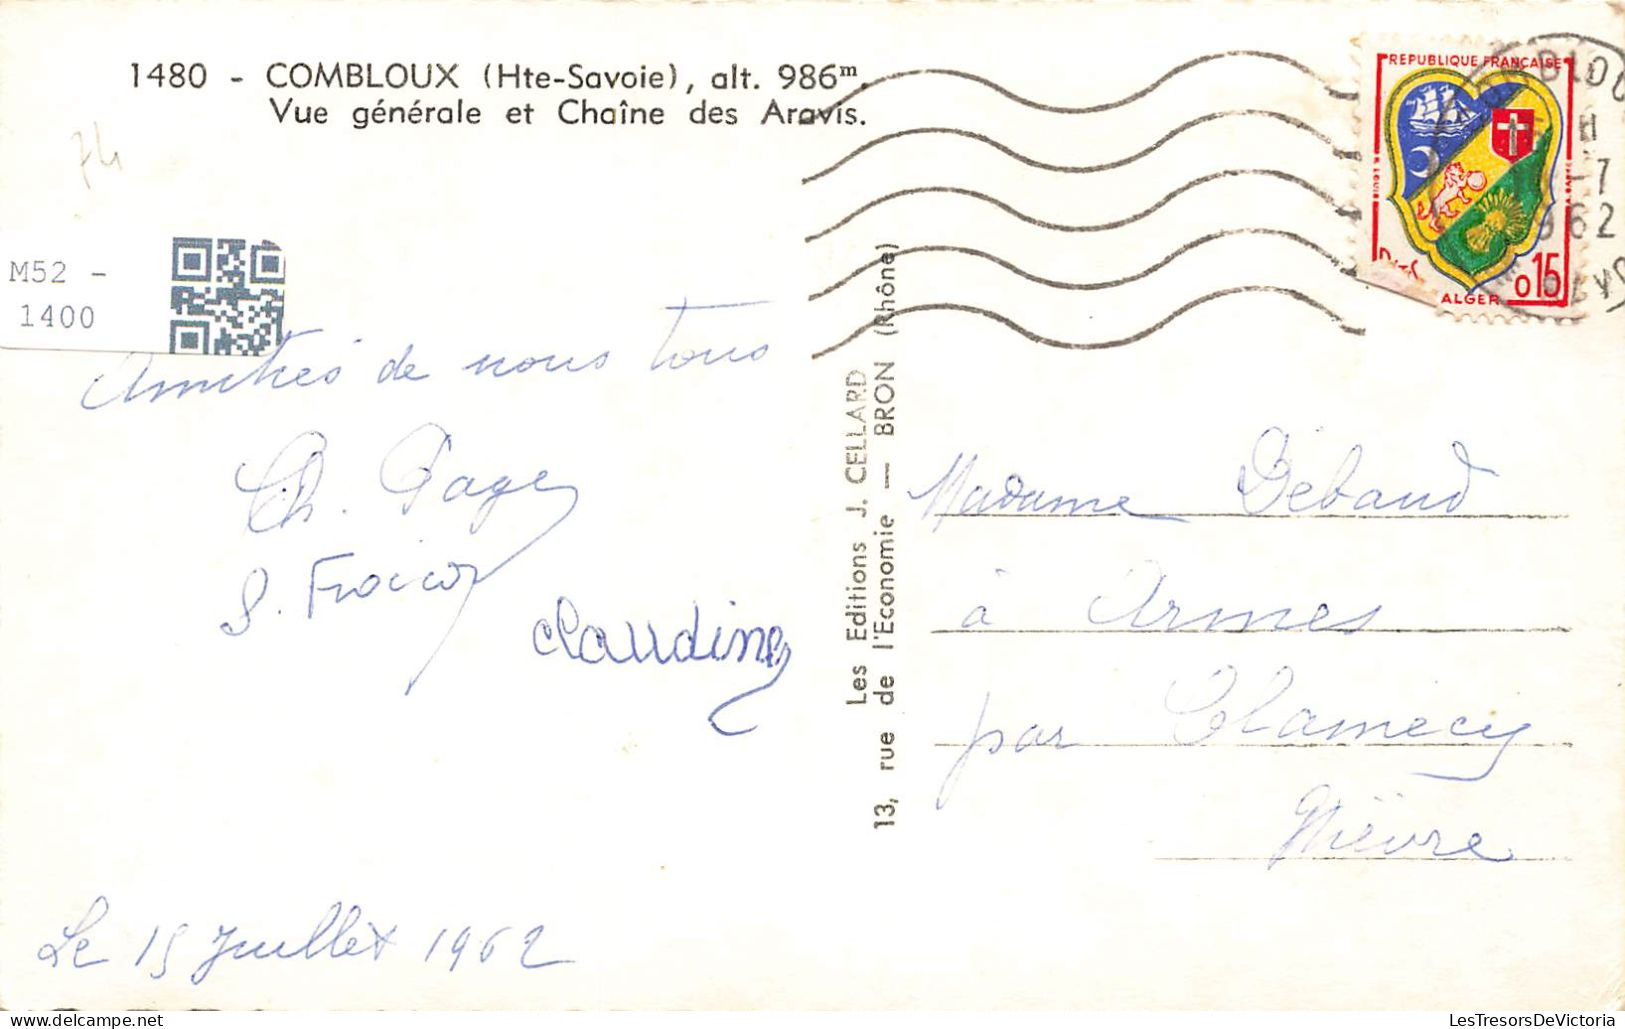 1480 - COMBLOUX (Hte-Savoie), alt. 986m.
Vue générale et Chaîne des Aravis.
74
M52 -
1400
Amitiés de nous tous
Ch. Page
S.
Claudine
Le 15 Juillet 1962
Les Editions J. CELLARD
13, rue de l'Economie — BRON (Rhône)
REPUBLIQUE FRANÇAISE
ALGER
0,15
COMBLOU
H
-7
1962
Madame Débaud
à Armes
par Clamecy
Nièvre
LesTresorsDeVictoria